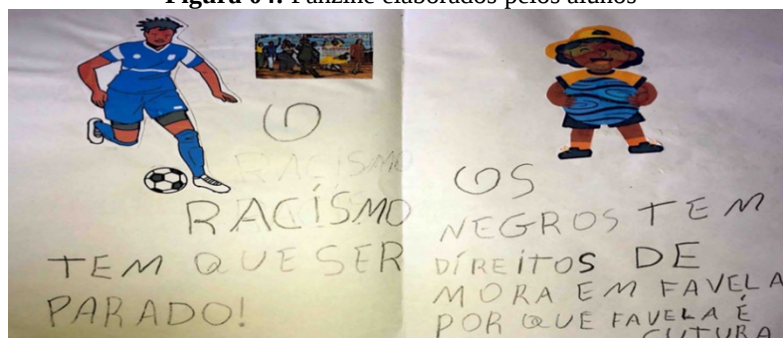 Figura 04: Fanzine elaborados pelos alunos
O
RACISMO
RACÍSMO
TEM QUE SER
PARADO!
OS
NEGROS TEM
DÍREÍTOS DE
MORA EM FAVELA
POR QUE FAVELA É
CUTURA